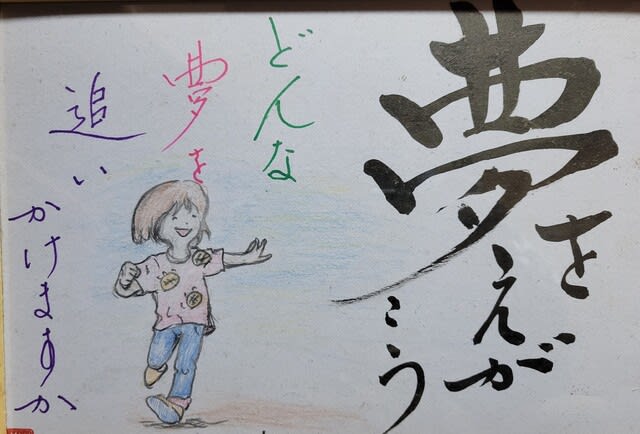 夢を
えが
こう
どんな
夢を
追い
かけますか